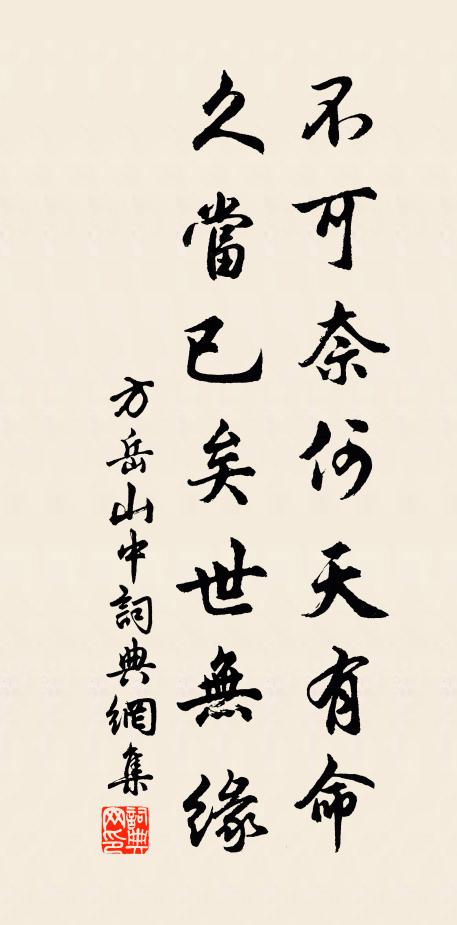 不可奈何天有命
久當已矣世無緣
方岳山中詞典網集
詞典網印